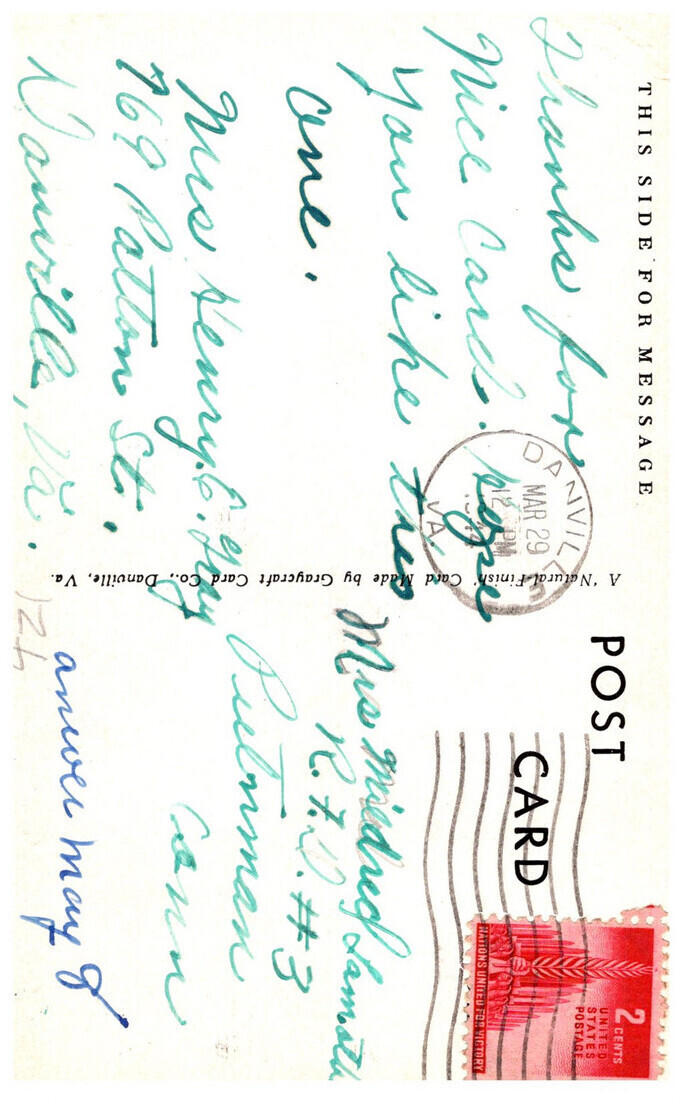 THIS SIDE FOR MESSAGE
Thanks for
Nice Card. Hope
you like this
one.
Mrs Henry E. Gray
769 Patton St.
Danville, Va.
A 'Natural-Finish' Card Made by Graycraft Card Co., Danville, Va.
POST
CARD
DANVILLE
MAR 29
12 PM
VA.
2 CENTS
UNITED
STATES
POSTAGE
NATIONS UNITED FOR VICTORY
Mrs Mildred Lamothe
R.F.D. #3
Putnam
Conn
answer may 8